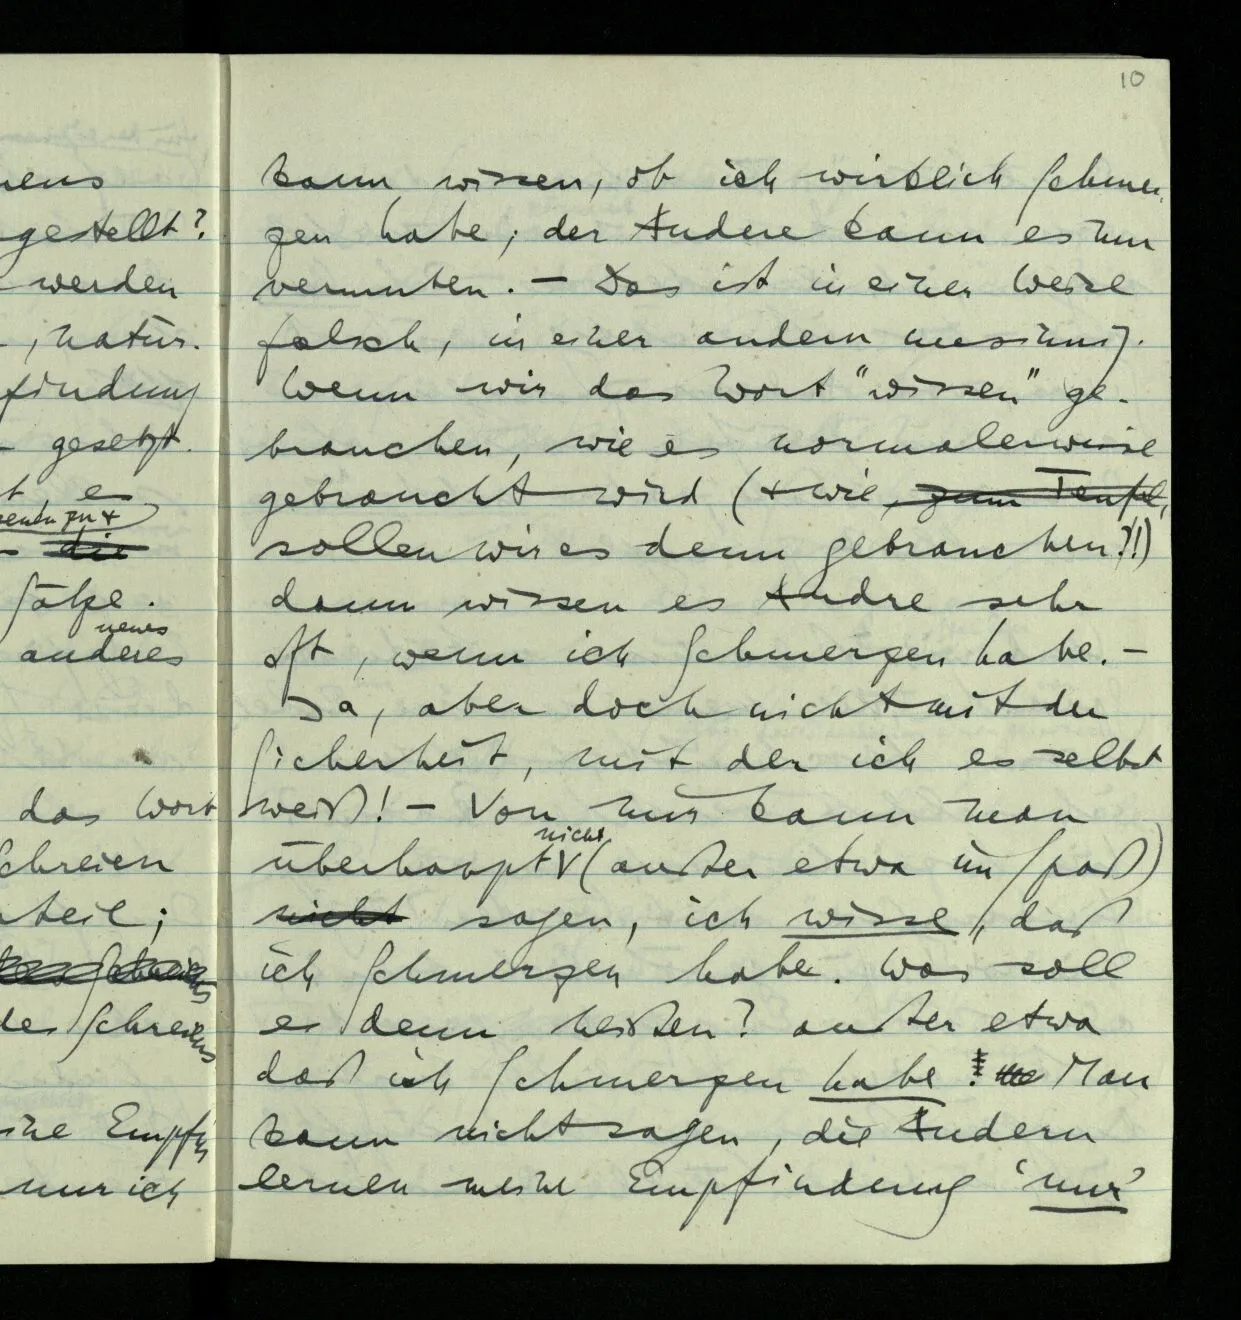 10
nens
gestellt?
werden
, natür-
findung
gesetzt.
t, es
die
Sätze.
neues
anderes
das Wort
Schreien
teil;
des Schreiens
ine Empfin
nur ich
kann wissen, ob ich wirklich Schmer-
zen habe; der Andere kann es nur
vermuten. – Das ist in einer Weise
falsch, in einer andern unsinnig.
Wenn wir das Wort "wissen" ge-
brauchen, wie es normalerweise
gebraucht wird (+ wie, zum Teufel,
sollen wir es denn gebrauchen?!)
dann wissen es Andre sehr
oft, wenn ich Schmerzen habe. –
Ja, aber doch nicht mit der
Sicherheit, mit der ich es selbst
weiß! – Von mir kann man
nicht
überhaupt V (außer etwa im Spaß)
nicht sagen, ich wisse, daß
ich Schmerzen habe. Was soll
es denn heißen? außer etwa
daß ich Schmerzen habe! Man
kann nicht sagen, die Andern
lernen meine Empfindung 'nur'